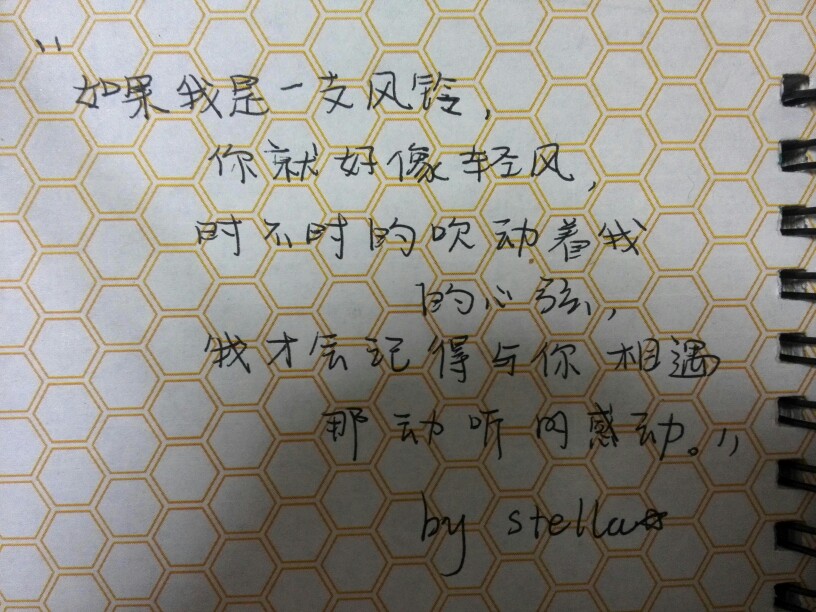 "如果我是一支风铃,
你就好像轻风,
时不时的吹动着我
的心弦,
我才会记得与你相遇
那动听的感动。"
by stella☆